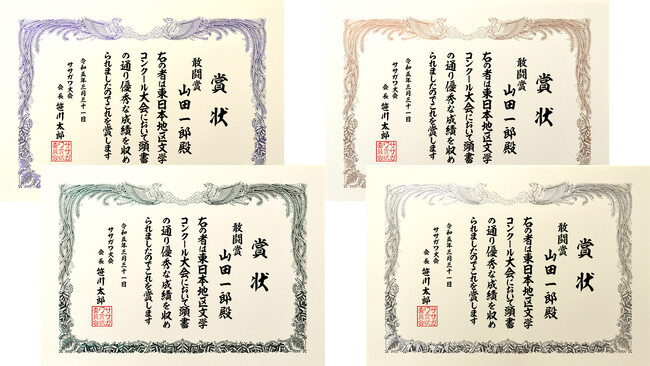 賞状
敢闘賞
山田一郎殿
右の者は東日本地区文学
コンクール大会において頭書
の通り優秀な成績を収め
られましたのでこれを賞します
令和五年三月三十一日
ササガワ大会
会長 笹川太郎
賞状
敢闘賞
山田一郎殿
右の者は東日本地区文学
コンクール大会において頭書
の通り優秀な成績を収め
られましたのでこれを賞します
令和五年三月三十一日
ササガワ大会
会長 笹川太郎
賞状
敢闘賞
山田一郎殿
右の者は東日本地区文学
コンクール大会において頭書
の通り優秀な成績を収め
られましたのでこれを賞します
令和五年三月三十一日
ササガワ大会
会長 笹川太郎
賞状
敢闘賞
山田一郎殿
右の者は東日本地区文学
コンクール大会において頭書
の通り優秀な成績を収め
られましたのでこれを賞します
令和五年三月三十一日
ササガワ大会
会長 笹川太郎